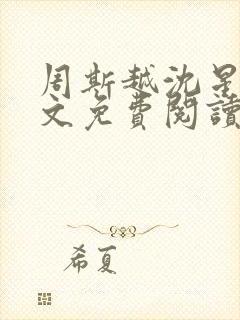 周斯越沈星
文免費閱讀
希夏